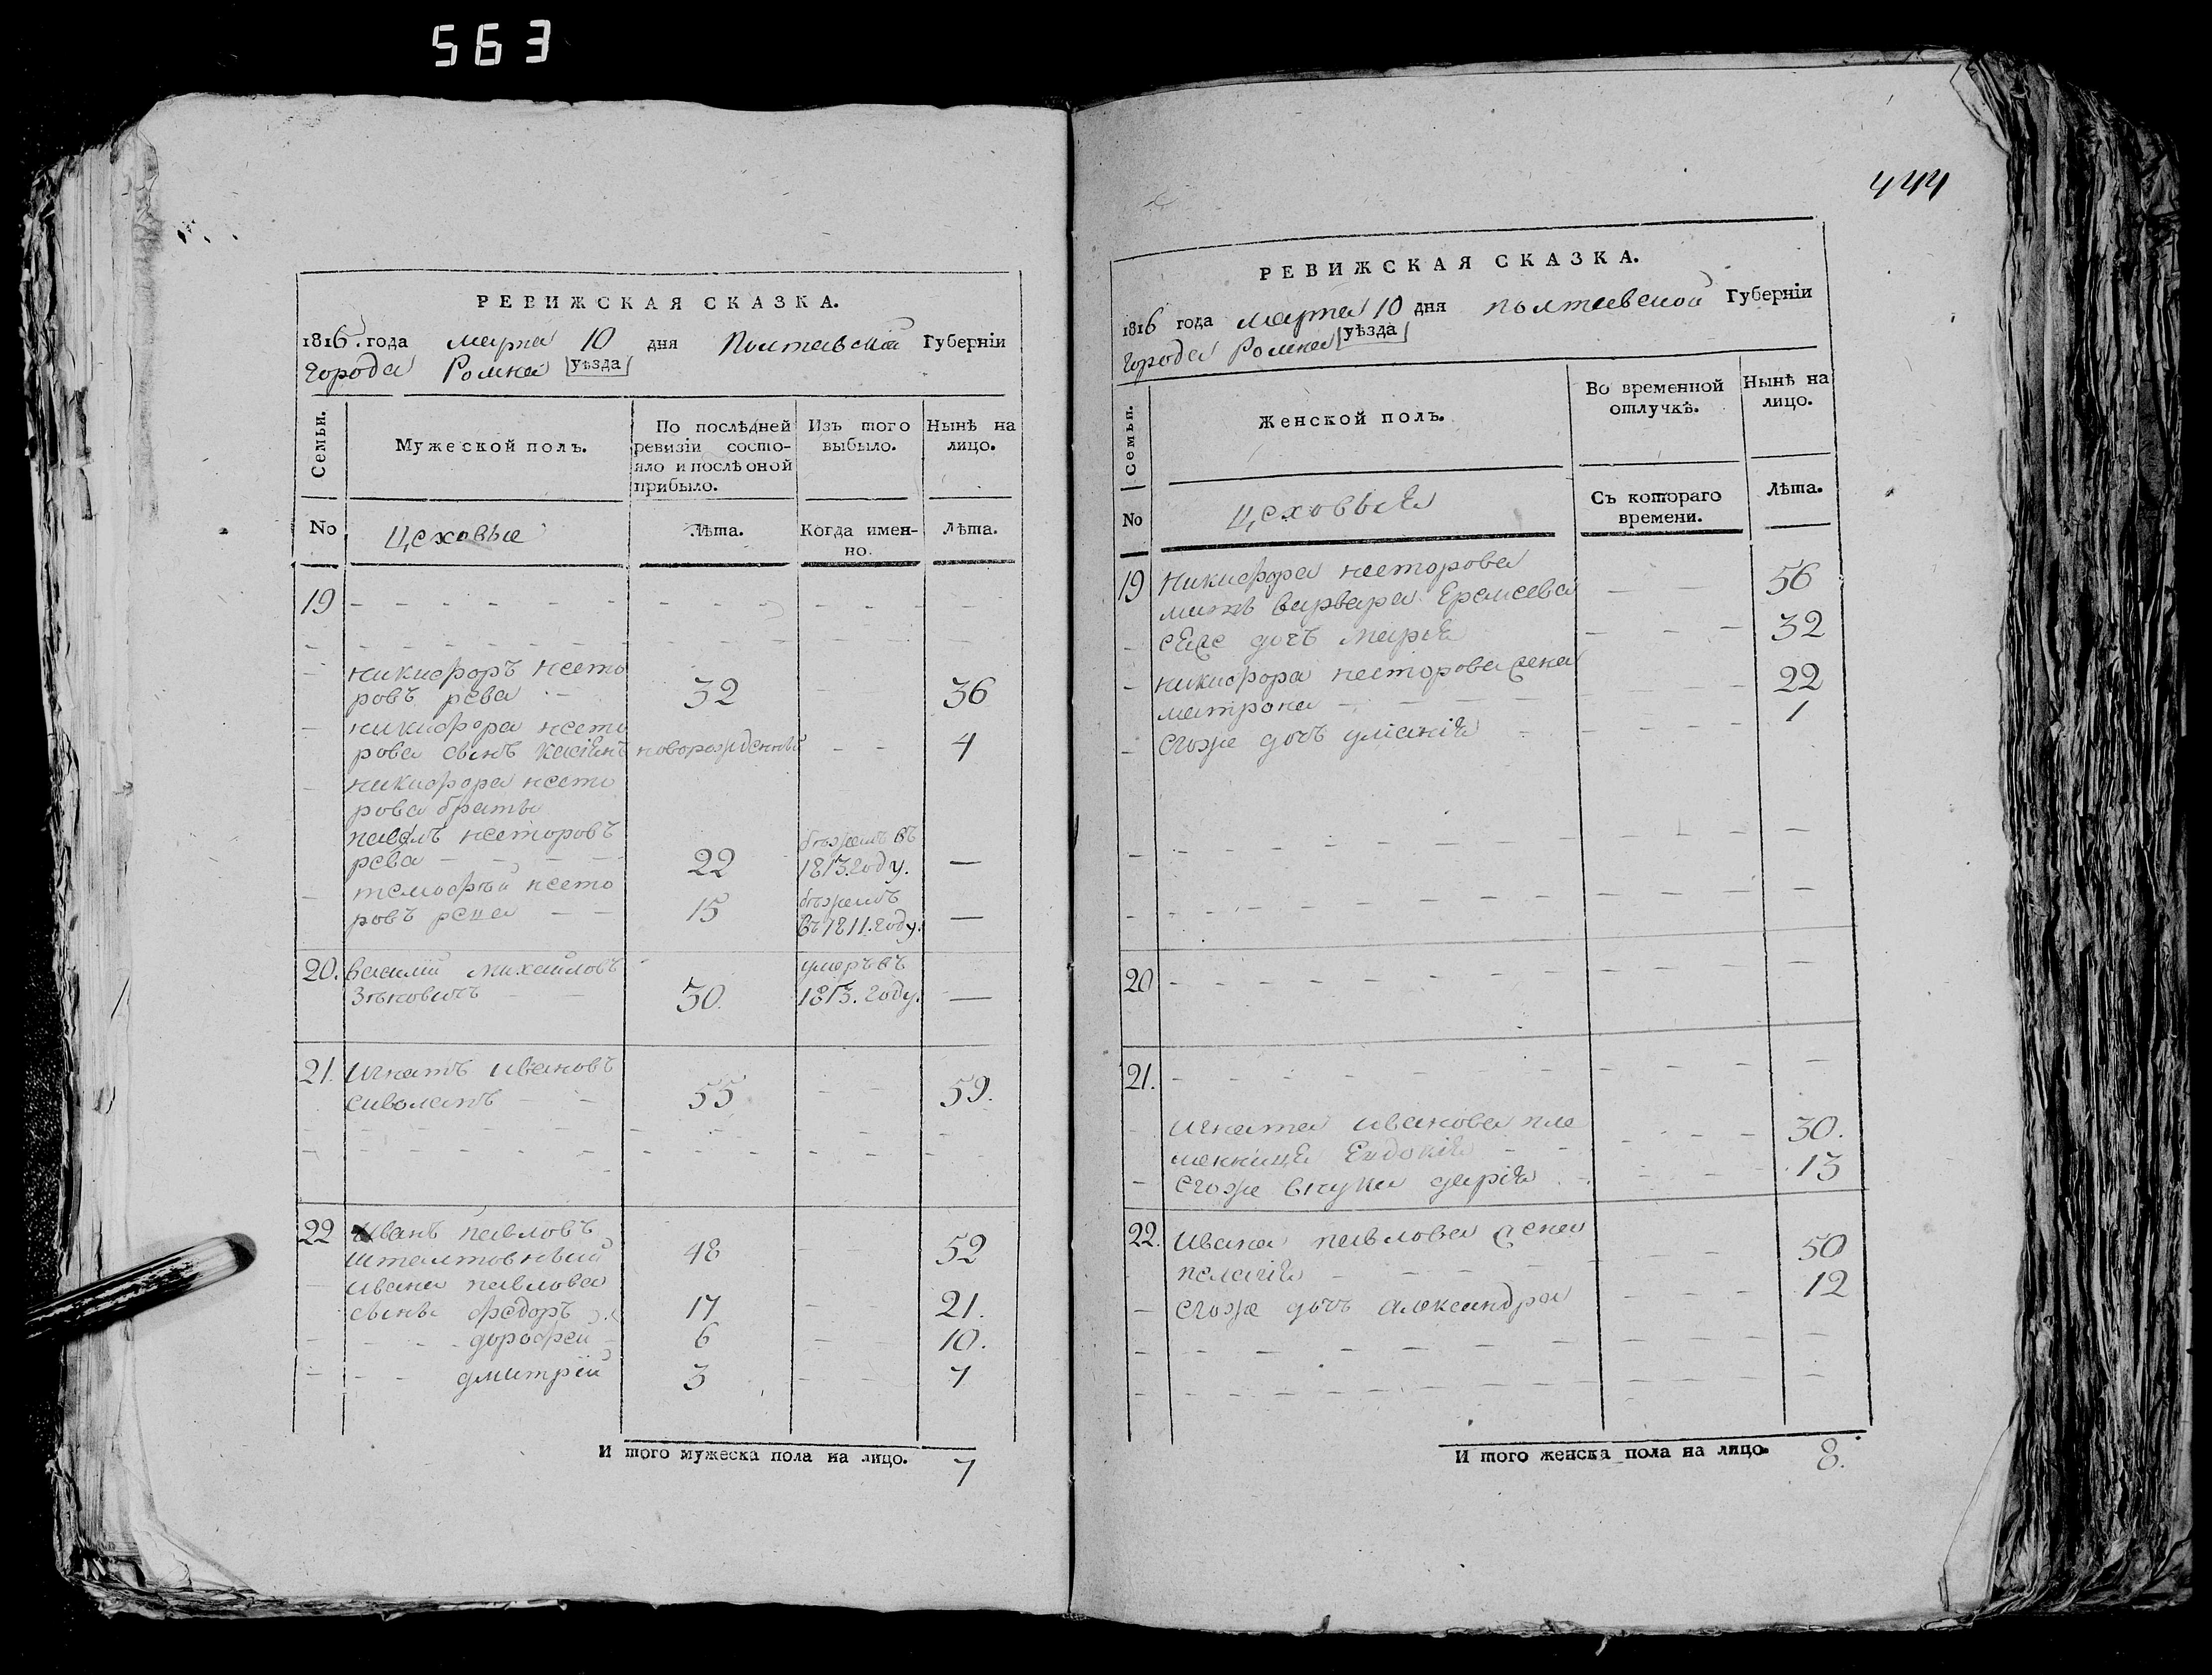 563
РЕВИЖСКАЯ СКАЗКА.
1816. года марта 10 дня Полтавской Губерніи
города Ромна уѣзда
Семьи.
Мужеской полъ.
По послѣдней ревизіи состояло и послѣ оной прибыло.
Изъ того выбыло.
Нынѣ на лицо.
No
цеховые
Лѣта.
Когда именно.
Лѣта.
19
никифоръ несто
ровъ рева 32 36
никифора несто
рова сынъ касіянъ новорожденный 4
никифора несто
рова братья
павелъ несторовъ бѣжалъ въ
рева 22 1813. году. —
тимофѣй несто бѣжалъ
ровъ рева 15 въ 1811. году. —
20. василій михайловъ умеръ въ
Зѣновичъ 30. 1813. году. —
21. игнатъ ивановъ
сиволапъ 55 59.
22 Иванъ павловъ
48 52
ивана павлова
сыны федоръ 17 21.
дорофей 6 10.
дмитрій 3 7
И того мужеска пола на лицо. 7
444
РЕВИЖСКАЯ СКАЗКА.
1816 года марта 10 дня полтавской Губерніи
города Ромна уѣзда
Семьи.
Женской полъ.
Во временной отлучкѣ.
Нынѣ на лицо.
No
цеховыя
Съ котораго времени.
Лѣта.
19 Никифора несторова 56
мать варвара Еремеева
сеяже дочь марія 32
никифора несторова жена 22
матрона
егоже дочь уліанія 1
20
21.
игната иванова пле 30.
менница Евдокія
егоже внука дарія 13
22. Ивана павлова жена 50
пелагія
егоже дочь александра 12
И того женска пола на лицо. 8.